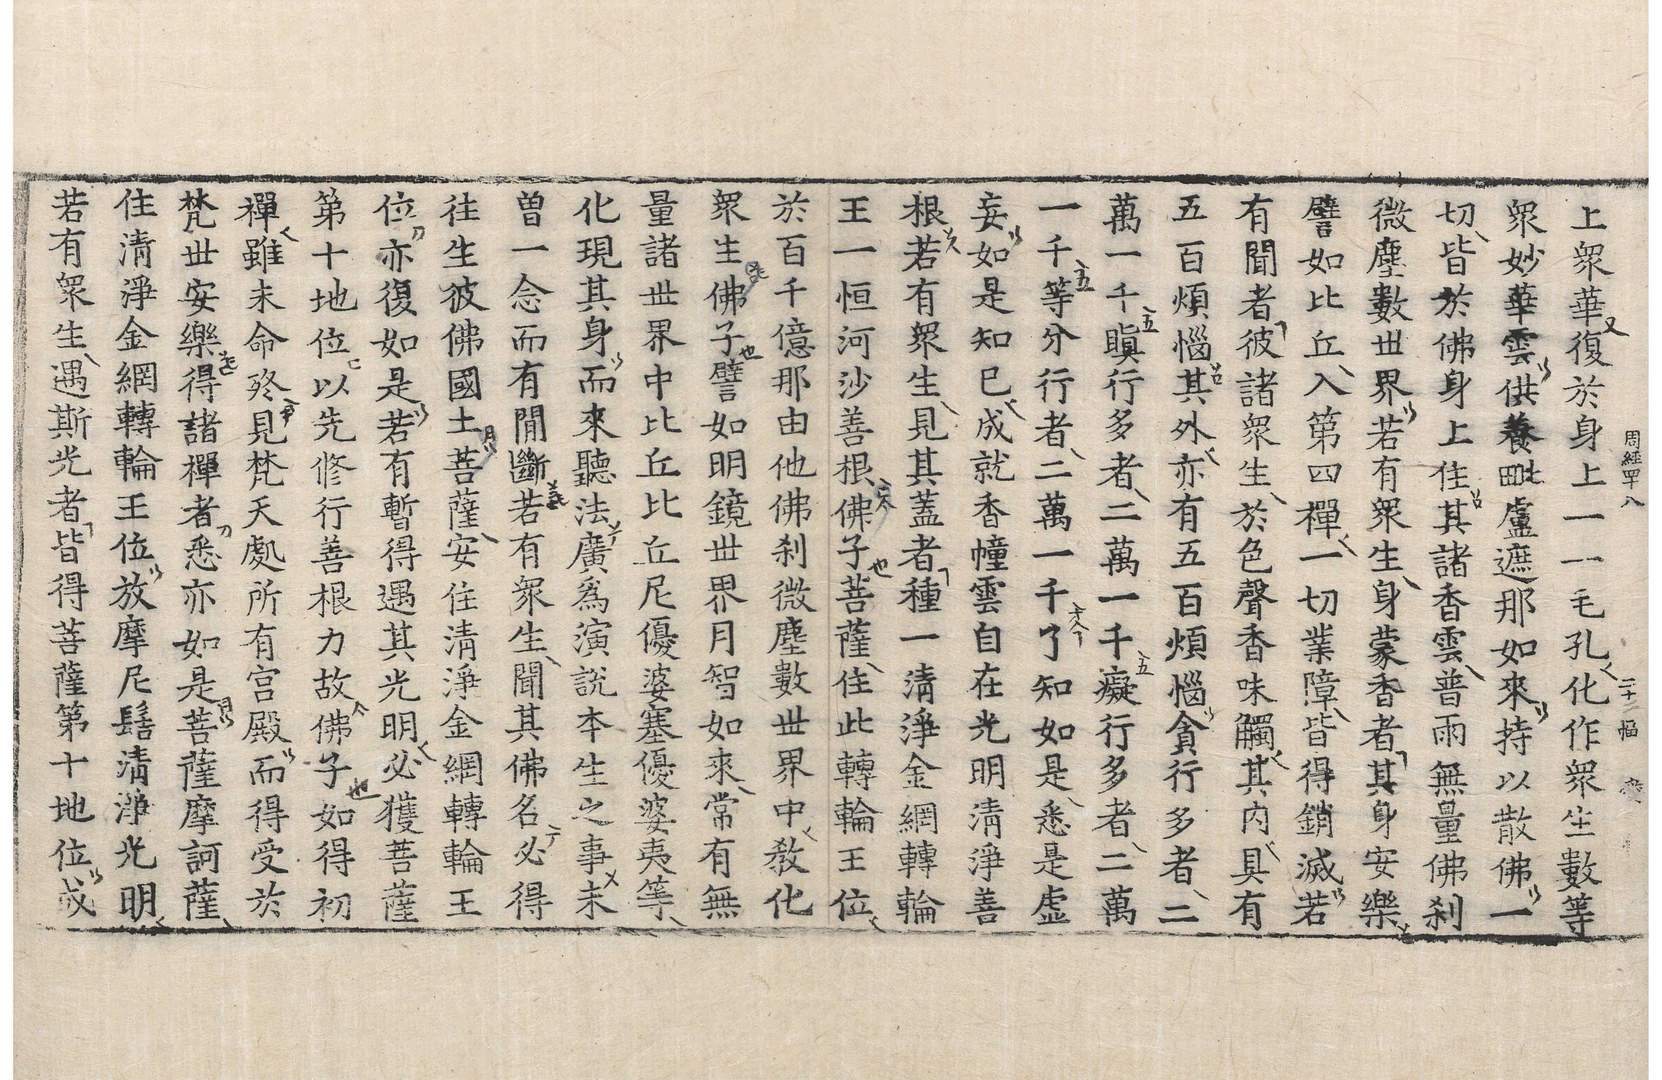 上衆華復於身上一一毛孔化作衆生數等
衆妙華雲供養毗盧遮那如來持以散佛一
切皆於佛身上住其諸香雲普雨無量佛刹
微塵數世界若有衆生身蒙香者其身安樂
譬如比丘入第四禪一切業障皆得銷滅若
有聞者彼諸衆生於色聲香味觸其內具有
五百煩惱其外亦有五百煩惱貪行多者二
萬一千瞋行多者二萬一千癡行多者二萬
一千等分行者二萬一千了知如是悉是虛
妄如是知已成就香幢雲自在光明清淨善
根若有衆生見其蓋者種一清淨金網轉輪
王一恒河沙善根佛子菩薩住此轉輪王位
於百千億那由他佛刹微塵數世界中敎化
衆生佛子譬如明鏡世界月智如來常有無
量諸世界中比丘比丘尼優婆塞優婆夷等
化現其身而來聽法廣爲演說本生之事未
曽一念而有間斷若有衆生聞其佛名必得
往生彼佛國土菩薩安住清淨金網轉輪王
位亦復如是若有暫得遇其光明必獲菩薩
第十地位以先修行善根力故佛子如得初
禪雖未命終見梵天處所有宮殿而得受於
梵世安樂得諸禪者悉亦如是菩薩摩訶薩
住清淨金網轉輪王位放摩尼髻清淨光明
若有衆生遇斯光者皆得菩薩第十地位成
周經四八 二十二幅